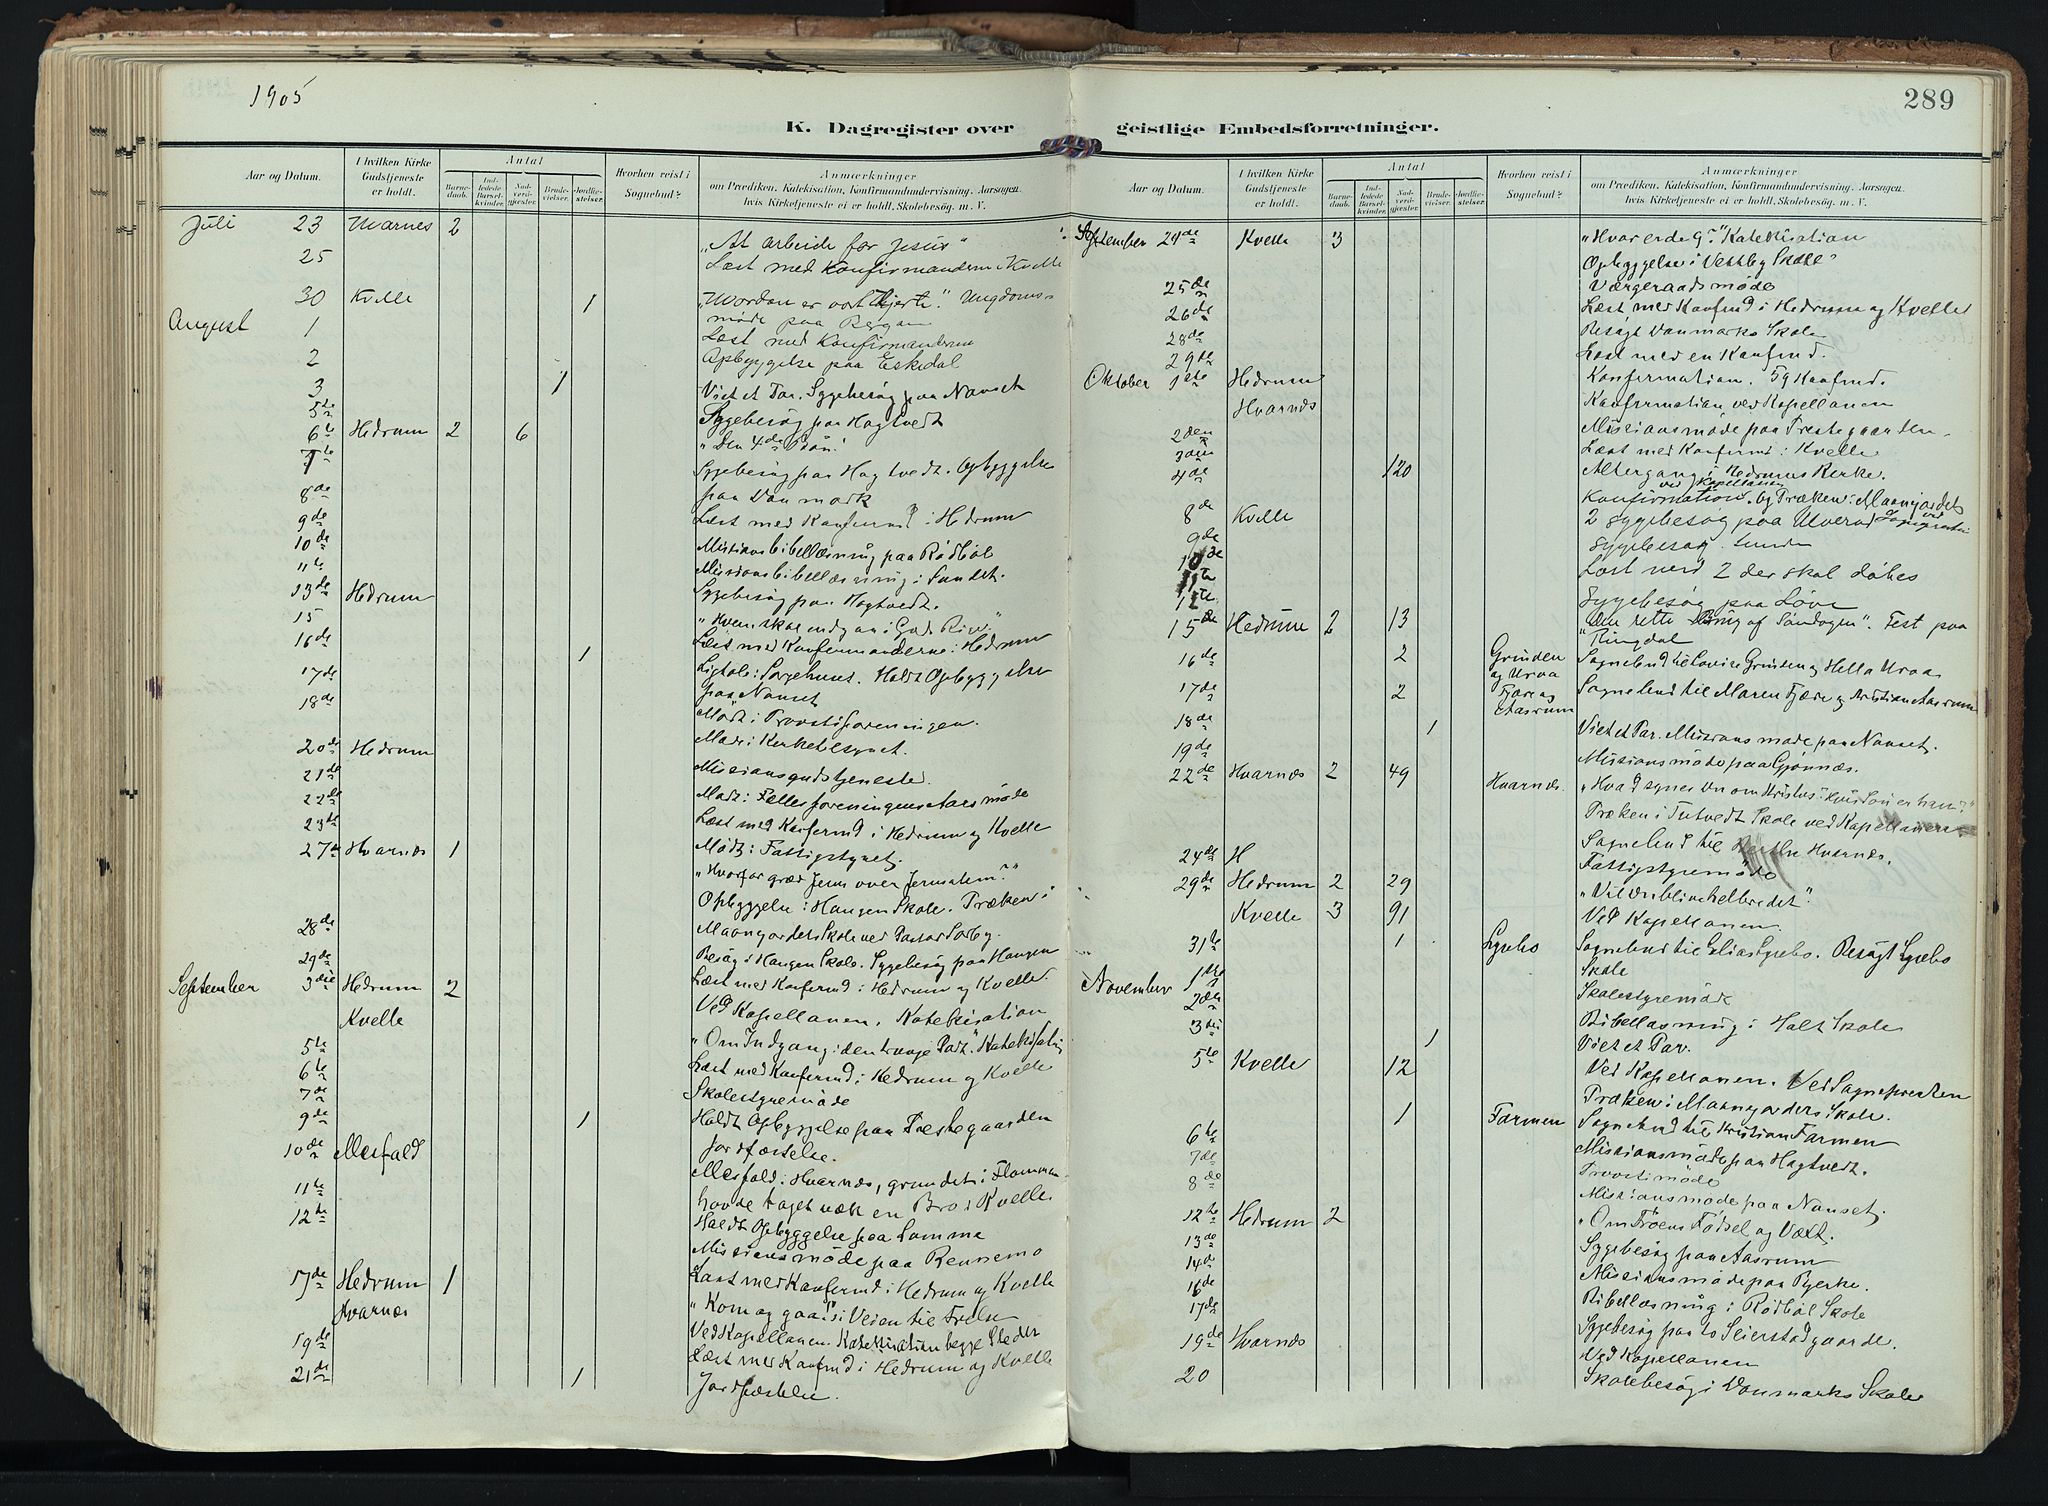 1905
289
K. Dagregister over geistlige Embedsforretninger.
Aar og Datum.
I hvilken Kirke Gudstjeneste er holdt.
Antal
Barnedaab.
Indledede Barselkvinder.
Nadverdgjester.
Brudevielser.
Jordfæstelser.
Hvorhen reist i Sognebud?
Anmærkninger
om Prædiken. Katekisation, Konfirmandundervisning. Aarsagen,
hvis Kirketjeneste ei er holdt. Skolebesøg. m. V.
Juli 23 Hvarnes 2
"At arbeide for Jesus"
25 Læst med Konfirmanderne i Kvelle
30 Kvelle 1 "Hvordan er vort Hjerte". Ungdoms-
møde paa Bergan
August 1 Læst med Konfirmanderne
2 Opbyggelse paa Eskedal
3 1 Viet et Par. Sygebesøg paa Nanset
5te Sygebesøg paa Hagtvedt
6te Hedrum 2 6 "Den 4de Bøn"
7te Sygebesøg paa Hagtvedt. Opbyggelse
paa Danmark
8de Læst med Konfirmd i Hedrum
9de
10de Missionsbibellæsning paa Rødbøl
11te Missionsbibellæsning i Sundet.
13de Hedrum Sygebesøg paa Hagtvedt.
15 "Hvem skal indgaa i Guds Rige"
16de 1 Læst med Konfirmanderne i Hedrum
17de Ligtale i Sørgehuset. Holdt Opbyggelse
paa Nanset
18de Mødt i Provstiforeningen.
20de Hedrum Møde i Kirketilsynet.
21de Missionsgudstjeneste.
22de Mødt i Fællesforeningens Aarsmøde
23de Læst med Konfirmd i Hedrum og Kvelle
27de Hvarnes 1 Mødt i Fattigstyret.
"Hvorfor græd Jesus over Jerusalem?"
Opbyggelse i Haugen Skole. Præken i
28de Maanejordets Skole ved Pastor Sørby.
29de Besøg i Haugen Skole. Sygebesøg paa Haugen
September 3die Hedrum 2 Læst med Konfirmd i Hedrum og Kvelle.
Kvelle Ved Kapellanen. Katekisation
5te "Om Indgang i den trange Port". Katekisation
6te Læst med Konfirmd i Hedrum og Kvelle
7de Skolestyremøde
9de 1 Holdt Opbyggelse paa Prestegaarden
10de Messfald Jordfæstelse.
11te Messfald i Hvarnes, grundet i Flommen
12te havde taget væk en Bro i Kvelle
Holdt Opbyggelse paa Lamma
Missionsmøde paa Rennemo
17de Hedrum 1 Læst med Konfirmd i Hedrum og Kvelle
Hvarnes "Kom og gaa" i Veien til Frelse
19de Ved Kapellanen. Katekisation begge Steder
21de 1 Læst med Konfirmd i Hedrum og Kvelle
Jordfæstelse.
K. Dagregister over geistlige Embedsforretninger.
Aar og Datum.
I hvilken Kirke Gudstjeneste er holdt.
Antal
Barnedaab.
Indledede Barselkvinder.
Nadverdgjester.
Brudevielser.
Jordfæstelser.
Hvorhen reist i Sognebud?
Anmærkninger
om Prædiken. Katekisation, Konfirmandundervisning. Aarsagen,
hvis Kirketjeneste ei er holdt. Skolebesøg. m. V.
September 24de Kvelle 3 "Hvor er de 9?" Katekisation
Opbyggelse i Vestby Skole
25de Værgeraadsmøde
26de Læst med Konfirmd i Hedrum og Kvelle
28de Besøgt Danmarks Skole
29de Læst med en Konfirmd.
Oktober 1ste Hedrum Konfirmation. 59 Konfirmd.
Hvarnes Konfirmation ved Kapellanen
2den Missionsmøde paa Prestegaarden.
3die Læst med Konfirmd i Kvelle
4de 120 Altergang i Hedrums Kirke.
8de Kvelle Konfirmation ved Kapellanen. Og Præken i Maanejordets
9de 2 Sygebesøg paa Ulverud
10de Sygebesøg
11te Læst med 2 der skal døbes
12te Sygebesøg paa Løve
15de Hedrum 2 13 "Den rette Brug af Søndagen". Fest paa
Ringdal
16de 2 Grinden og Uraa
17de 2 Fjære og Aasrum Sognebud til Maren Fjære og Kristian Aasrum
18de 1 Viet et Par. Missionsmøde paa Nanset.
19de Missionsmøde paa Gjønnæs.
22de Hvarnæs 2 49 Hvarnæs. "Hvad synes du om Kristus? Hvis Søn er han?"
Præken i Tutvedt Skole ved Kapellanen
Sognebud til Hvarnæs.
24de H Fattigstyremøde
29de Hedrum 2 29 "Vil du blive helbredet".
Kvelle 3 91 Ved Kapellanen.
31te 1 Lysebo Sognebud til Elias Lysebo. Besøgt Lysebo
Skole
November 1ste
2den Skolestyremøde
3die 1 Bibellæsning i Holt Skole
Viet et Par.
5te Kvelle 12 Ved Kapellanen. Ved Sognepresten
Præken i Maanejordets Skole.
1 Farmen Sognebud til Kristian Farmen
6te Missionsmøde paa Hagtvedt.
7de Provstimøde
8de Missionsmøde paa Nanset.
12te Hedrum 2 "Om Troens Fødsel og Vext."
13de Sygebesøg paa Aasrum
14de Missionsmøde paa Bjerke.
16de Bibellæsning i Rødbøl Skole
17de Sygebesøg paa to Seierstad gaarde.
19de Hvarnæs Ved Kapellanen
20 Skolebesøg i Danmarks Skole